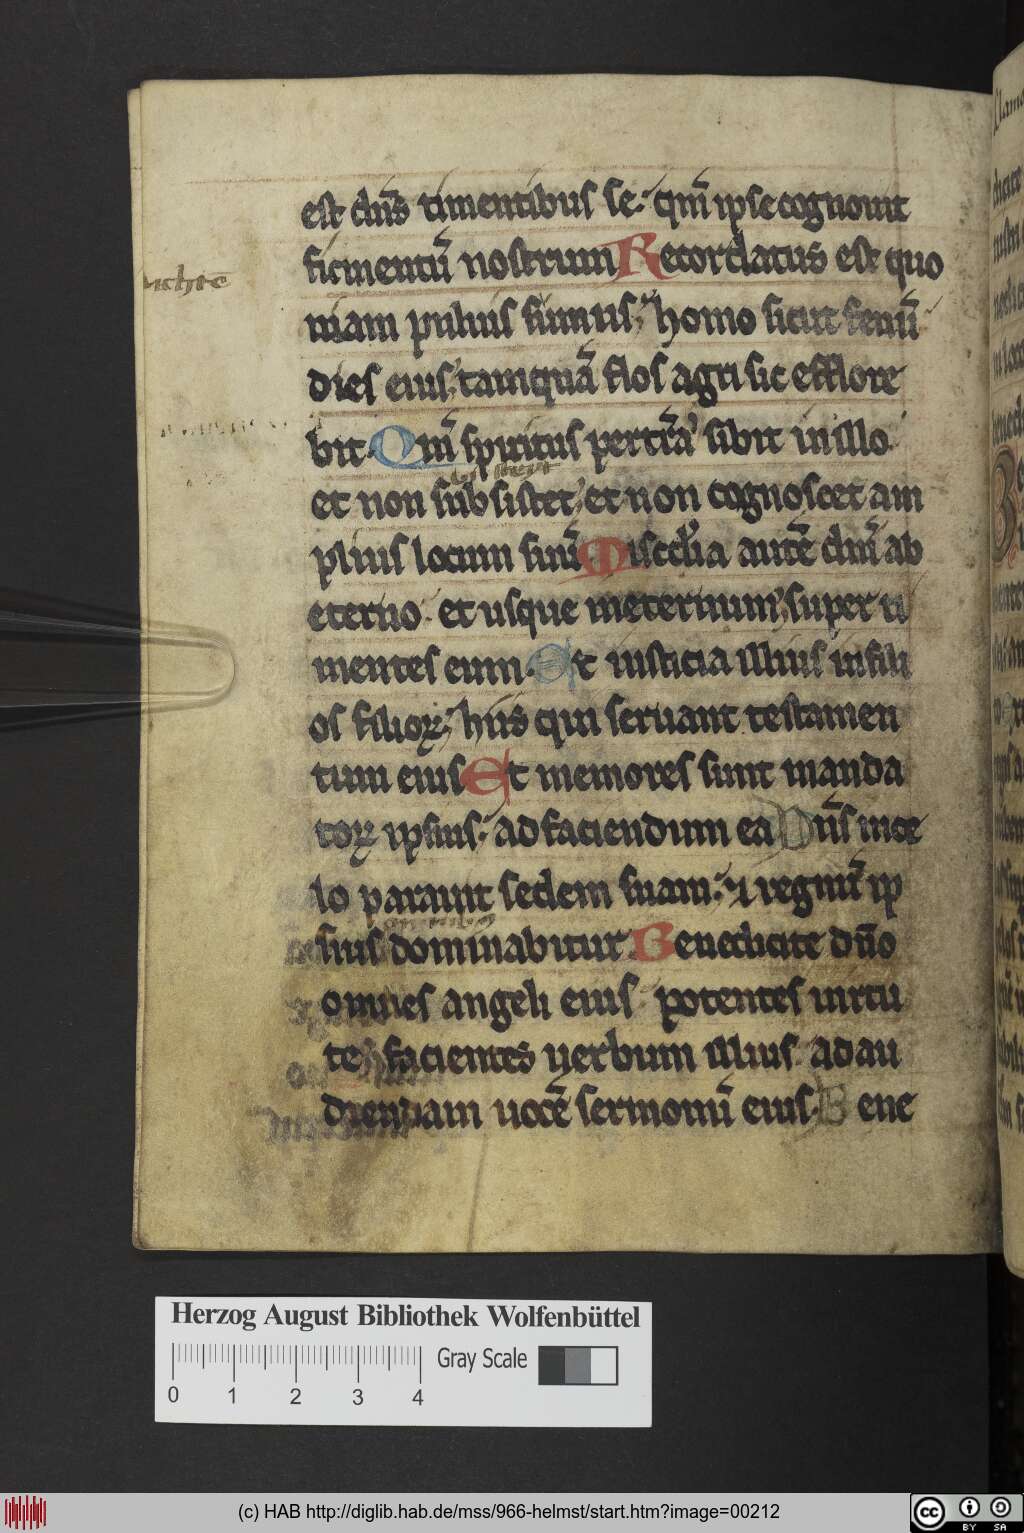 est dn̄s timentibus se. qm̄ ipse cognouit
figmentū nostrum Recordatus est quo
niam puluis sumus, homo sicut fenū
dies eius, tamquā flos agri sic efflore
bit. Qm̄ spiritus pertͣnsi sibit in illo.
et non subsistet, et non cognoscet am
plius locum suū Misc̄dia autē dn̄i ab
eterno. et usque in eternum, super ti
mentes eum. Et iusticia illius in fili
os filioꝝ, hiis qui seruant testamen
tum eius Et memores sunt manda
toꝝ ipsius. ad faciendum ea Dn̄s in ce
lo parauit sedem suam. ⁊ regnū ip
sius dominabitur. Benedicite dn̄o
omnes angeli eius potentes uirtu
te, facientes uerbum illius. ad au
diendam uocē sermonū eius. Bene
Herzog August Bibliothek Wolfenbüttel
Gray Scale
0 1 2 3 4
(c) HAB http://diglib.hab.de/mss/966-helmst/start.htm?image=00212
cc BY SA